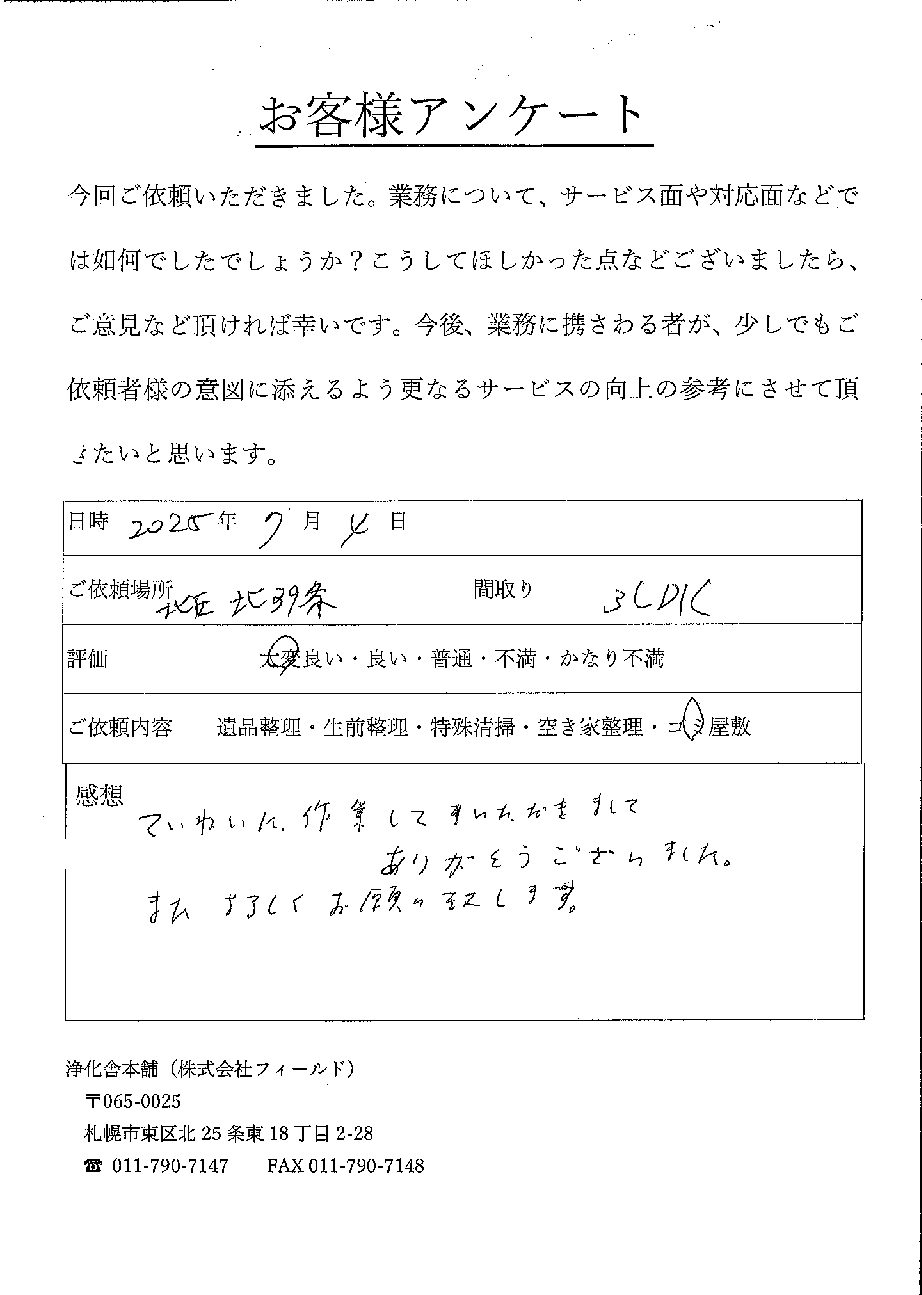 お客様アンケート
今回ご依頼いただきました。業務について、サービス面や対応面などで
は如何でしたでしょうか？こうしてほしかった点などございましたら、
ご意見など頂ければ幸いです。今後、業務に携さわる者が、少しでもご
依頼者様の意図に添えるよう更なるサービスの向上の参考にさせて頂
きたいと思います。
日時 2025年 7月 4日
ご依頼場所 北区 北39条 間取り 3LDK
評価 大変良い・良い・普通・不満・かなり不満
ご依頼内容 遺品整理・生前整理・特殊清掃・空き家整理・ゴミ屋敷
感想
ていねいに、作業していただきまして
ありがとうございました。
また よろしくお願い致します。
浄化舎本舗（株式会社フィールド）
〒065-0025
札幌市東区北25条東18丁目2-28
☎ 011-790-7147 FAX 011-790-7148